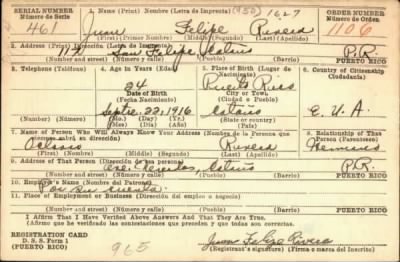 SERIAL NUMBER
Número de Serie
461
1. Name (Print) Nombre (Letra de Imprenta) (950) 1627
Juan Felipe Rivera
(First) (Primer Nombre) (Middle) (Segundo) (Last) (Apellido)
ORDER NUMBER
Número de Orden
1106
2. Address (Print) Dirección (Letra de Imprenta)
San Felipe Cataño P.R.
(Number) (Número) (Street) (Calle) (Town) (Pueblo) (Barrio) PUERTO RICO
3. Telephone (Teléfono)
4. Age in Years (Edad)
24
Date of Birth
(Fecha Nacimiento)
Septe. 22, 1916
(Mo.) (Day) (Yr.)
(Mes) (Día) (Año)
5. Place of Birth (Lugar de Nacimiento)
Puerto Rico
City or Town
Ciudad o Pueblo
Cataño
(State or country)
País)
6. Country of Citizenship
Ciudadanía
E.U.A.
(Number) (Número)
7. Name of Person Who Will Always Know Your Address (Nombre de la Persona que
siempre sabrá su dirección)
Rivera
(First) (Primer) (Middle) (Segundo) (Last) (Apellido)
8. Relationship of That
Person (Parentesco)
Hermano
9. Address of That Person (Dirección de esa persona)
Cataño P.R.
(Number) (Número) (Street) (Calle) (Town) (Pueblo) (Barrio) PUERTO RICO
10. Employer's Name (Nombre del Patrono)
Por su cuenta
11. Place of Employment or Business (Dirección del empleo o negocio)
(Number) (Número) (Street) (Calle) (Town) (Pueblo) (Barrio) PUERTO RICO
I Affirm That I Have Verified Above Answers And That They Are True.
(Afirmo que he verificado las contestaciones que preceden y que todas son correctas.
REGISTRATION CARD
D. S. S. Form 1
PUERTO RICO
965
Juan Felipe Rivera
(Registrant's signature) (Firma o marca del Inscrito)